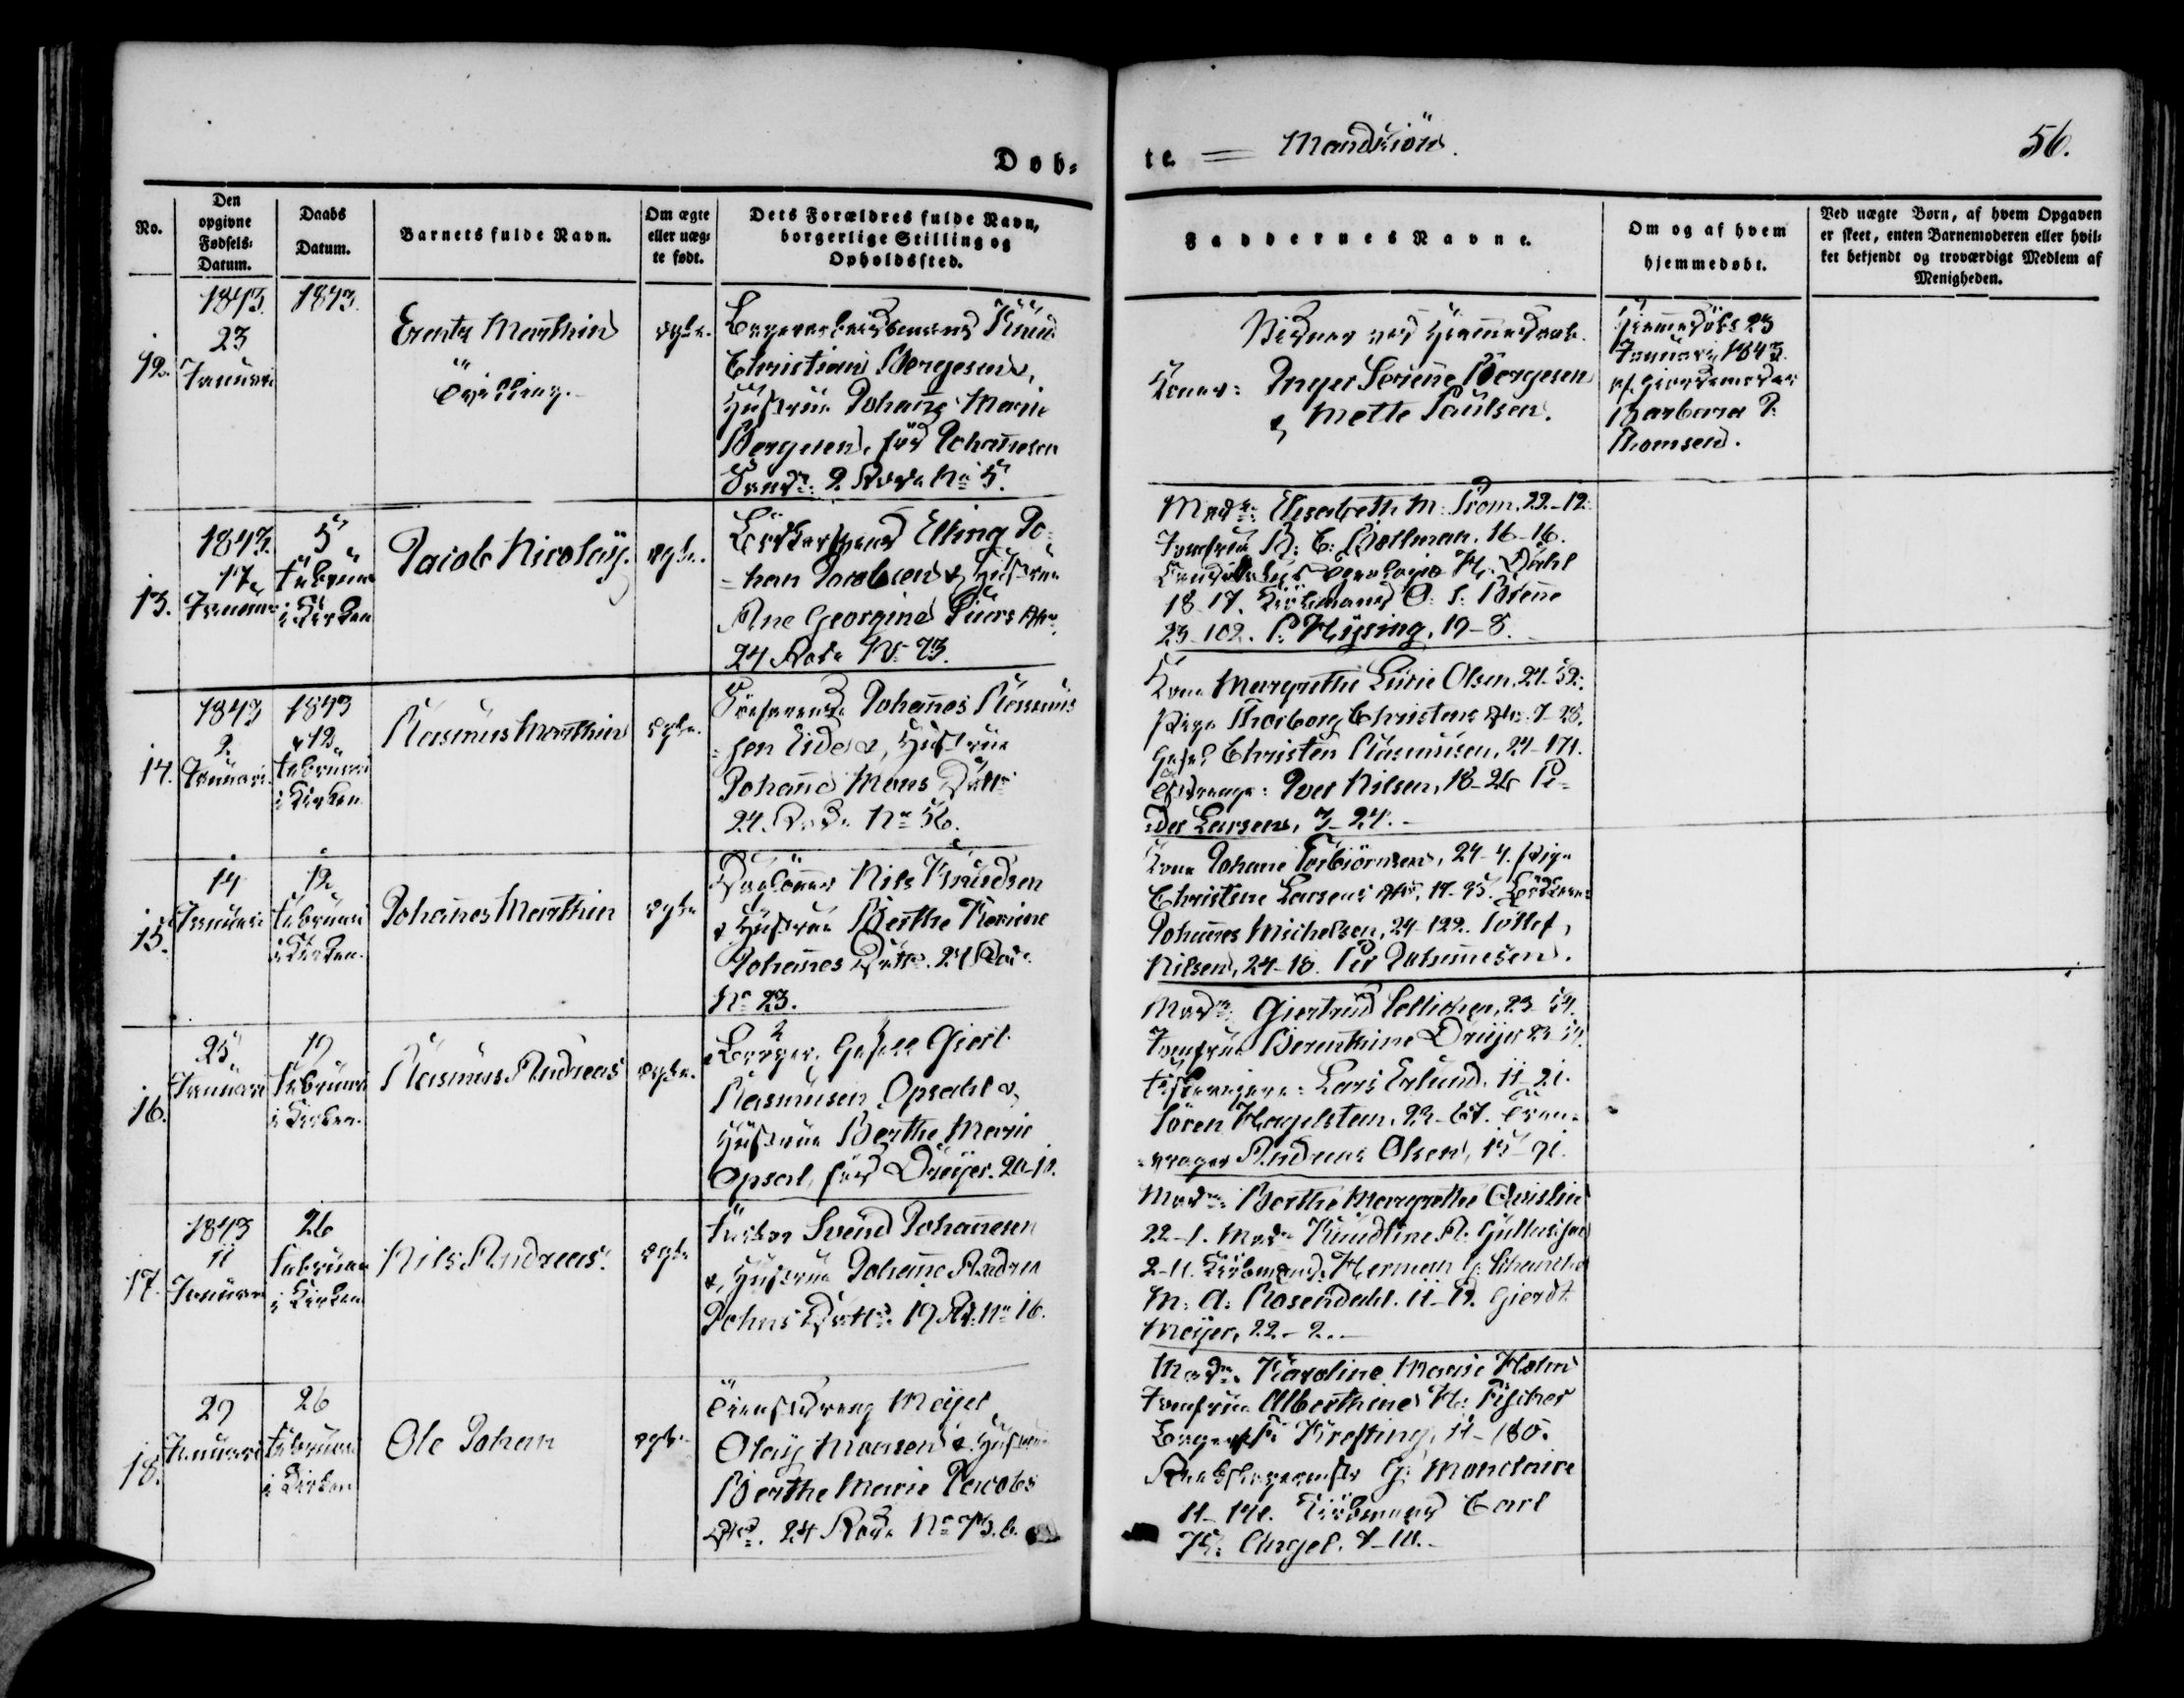 Døb-
te = Mandkiön.
56.
No.
Den opgivne Fødsels-Datum.
Daabs Datum.
Barnets fulde Navn.
Om ægte eller uægte født.
Dets Forældres fulde Navn, borgerlige Stilling og Opholdssted.
Faddernes Navne.
Om og af hvem hjemmedøbt.
Ved uægte Børn, af hvem Opgaven er skeet, enten Barnemoderen eller hvilket bekjendt og troværdigt Medlem af Menigheden.
12.
1843.
23
Januari
1843.
Erents Marthin
Tvilling.
ægte.
Knud
Christian Børgesen &
Hustrue Johanne Marie
Børgesen, fød Johannesen
2 Rode No 5.
Vidner ved Hjemmedaab.
Koner: Inger Serine Børgesen
& Mette Paulsen.
Hjemmedøbt 23
Januari 1843.
af Giordemoder
Barbara P.
Thomsen.
13.
1843.
17
Januari
5
Februari
i Kirken
Jacob Nicolay.
ægte.
Bødkersvend Elling Jo-
han Jacobsen & Hustrue
Ane Georgine
24 Rode No 73.
Madm: Elisabeth M: From, 22-12.
Jomfrue B: C: Bollman, 16-16.
H: Dahl
18-17. Kiøbmand O: S: Brenne
23-102. P: Hysing, 19-8.
14.
1843
2
Januari.
1843
12
Februari
i Kirken
Rasmus Marthin
ægte.
Johannes Rasmus-
sen Eide &, Hustrue
Johanne Mons Datt.
24 Rode No 56.
Kone Margrethe Lisie Olsen, 21-52.
Pige Thorborg Christens Dtr. 7-28.
Christen Rasmusen, 24-171.
Iver Nilsen, 18-26 Pe-
der Larsen, 7-24.
15.
14
Januari
12
Februari
i Kirken.
Johannes Marthin
ægte
Nils Knudsen
& Hustrue Berthe Karine
Johannes Datt. 24 Rode
No 23.
Kone Johane Torbiörnsen, 24-4. Pige
Christine Larsens Dtr. 17-95.
Johannes Michelsen, 24-122. Tollef
Nilsen, 24-18. Per Johannesen.
16.
25
Januari
19
Februari
i Kirken.
Rasmus Andreas
ægte.
Borger,
Rasmusen Opsahl &
Hustrue Berthe Marie
Opsal, fød Dreijer. 20-10.
Madm: Giertrud 23-54.
Jomfrue Berenthine Dreijer 23-54.
Lars Erlund. 11-21.
Søren Hagelsteen, 22-61.
Andreas Olsen, 15-91.
17.
1843
11
Januari
26
Februari
i Kirken
Nils Andreas.
ægte
Fisker Svend Johannesen
&, Hustrue Johanne Andrea
Johns Datt. 19 Rd. No 16.
Madm: Berthe Margrethe Qvislin
22-1. Madm Knudline A:
2-11. Kiøbmænd: Herman G:
M: A: Rosendahl. 11-19. Gierdt
Meijer, 22-2.
18.
29
Januari
26
Februari
i Kirken
Ole Johan
ægte
Tienestdreng Meijel
Olay Monsen & Hustrue
Berthe Marie Jacobs
Dtr. 24 Rode No 73.b.
Madm. Karoline Marie Holm
Jomfrue Alberthine H: Fischer
Kresting, 11-180.
G: Monclaire
11-141. Kiøbmand Carl
K: Angel. 7-10.